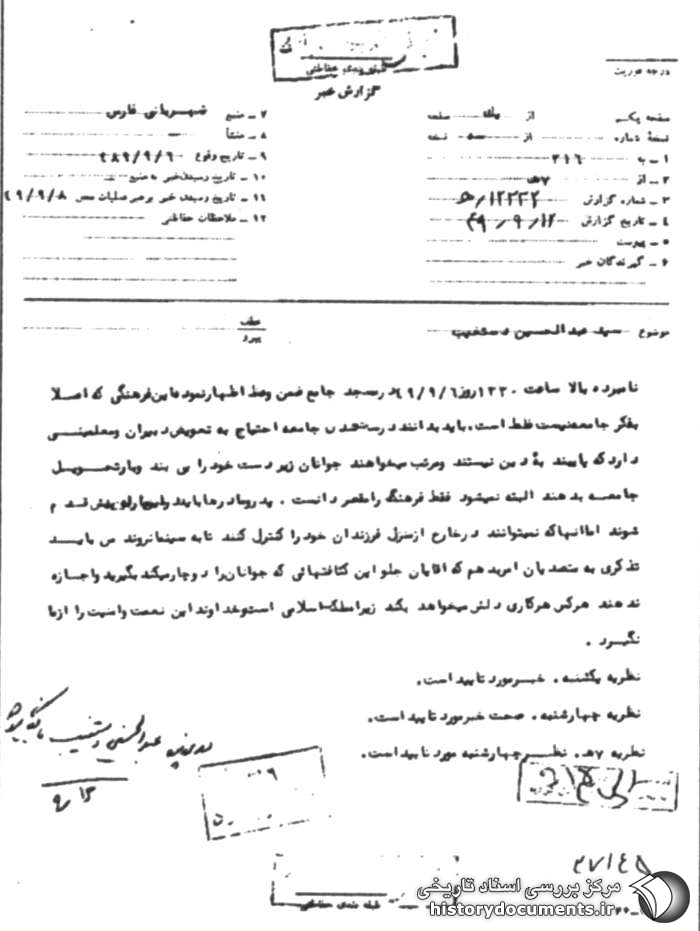 طبقه بندی حفاظتی
گزارش خبر
درجه فوریت
صفحه یکم از یک صفحه
نسخهٔ شماره از نسخه
۱ - به ۳۱۶
۲ - از ۷ هـ
۳ - شماره گزارش ۱۲۳۳۲/هـ
۴ - تاریخ گزارش ۴۹/۹/۱۲
۵ - پیوست
۶ - گیرندگان خبر
۷ - منبع شهربانی فارس
۸ - منشأ
۹ - تاریخ وقوع
۱۰ - تاریخ رسیدن خبر به منبع
۱۱ - تاریخ رسیدن خبر برهبر عملیات ۴۹/۹/۸
۱۲ - ملاحظات حفاظتی
موضوع سید عبدالحسین دستغیب
عطف
پیرو
نامبرده بالا ساعت ۱۳۳۰ روز ۴۹/۹/۶ در مسجد جامع ضمن وعظ اظهار نمود ما این فرهنگی که اصلا
بفکر جامعه نیست غلط است. باید بدانند درست شدن جامعه احتیاج به تعویض دبیران و معلمینی
دارد که پایبند بهٔ دین نیستند و مرتب میخواهند جوانان زیر دست خود را بی بند و بار تحویل
جامعه بدهند البته نمیشود فقط فرهنگ را مقصر دانست . پدر و مادرها باید پیش قدم
شوند اما آنها که نمیتوانند در خارج از منزل فرزندان خود را کنترل کنند تا به سینما نروند من باید
تذکری به متصدیان امر بدهم که آقایان جلو این کثافتهائی که جوانان را دوچار میکند بگیرید و اجازه
ندهند هر کس هر کاری دلش میخواهد بکند زیرا مملکت اسلامی است و خداوند این نعمت و امنیت را از ما
نگیرد .
نظریه یکشنبه . خبر مورد تایید است.
نظریه چهارشنبه . صحت خبر مورد تایید است.
نظریه ۷ هـ. نظر چهارشنبه مورد تایید است.
عبدالحسین دستغیب
۲۷۱۴۵
طبقه بندی حفاظتی
مرکز بررسی اسناد تاریخی
historydocuments.ir